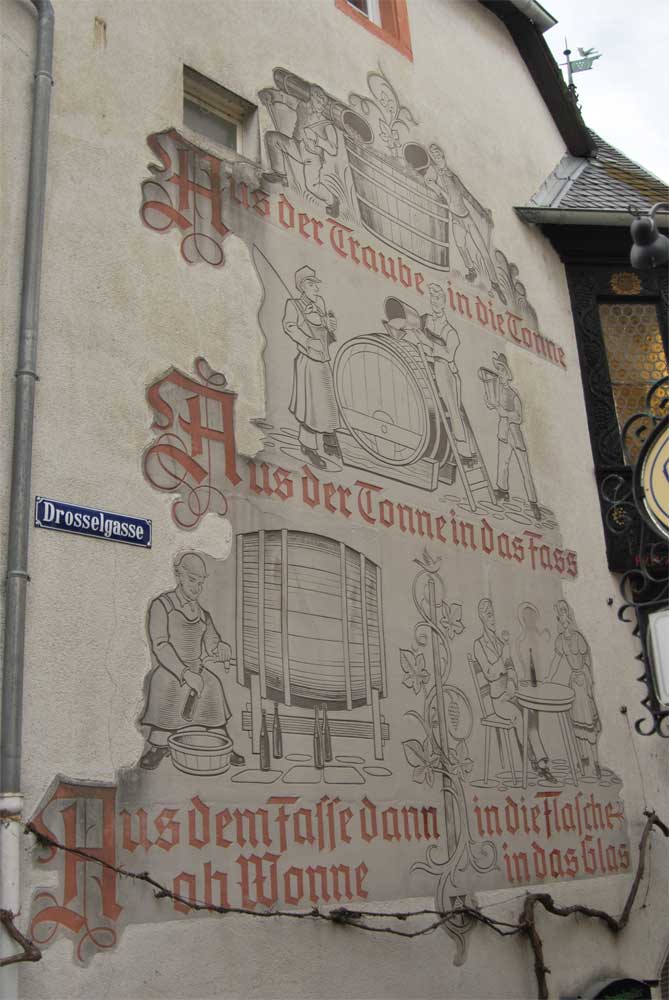 Aus der Traube in die Tonne
Aus der Tonne in das Fass
Drosselgasse
Aus dem Fasse dann
ah Wonne
in die Flasche
in das Glas